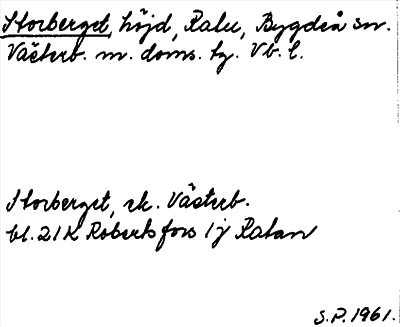 Storberget, höjd, Ratu, Bygdeå sn.
Västerb. m. doms. tg. Vb. l.
Storberget, ek. Västerb.
bl. 21K Robertsfors 1j Ratan
S.P. 1961.